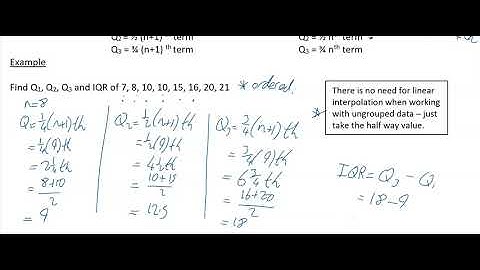 Q₂ = ½ (n+1) ᵗʰ term
Q₂ = ½ nᵗʰ term
Q₃ = ¾ (n+1) ᵗʰ term
Q₃ = ¾ nᵗʰ term
Example
Find Q₁, Q₂, Q₃ and IQR of 7, 8, 10, 10, 15, 16, 20, 21
* ordered.
There is no need for linear
interpolation when working
with ungrouped data – just
take the half way value.
*
n=8
Q₁=¼(n+1)th
=¼(9)th
=2¼th
=8+10/2
= 9
Q₂=½(n+1)th
=½(9)th
=4½th
=10+15/2
= 12.5
Q₃=¾(n+1)th
=¾(9)th
=6¾th
=16+20/2
=18
IQR=Q₃-Q₁
=18-9